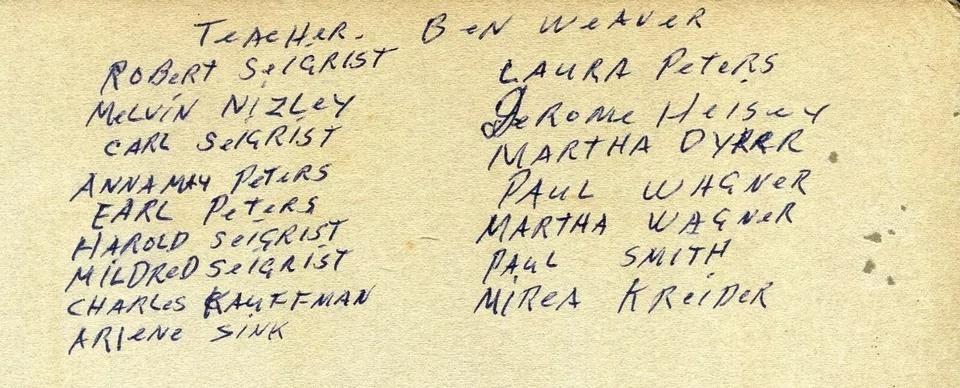 TeAcHeR. BeN WeAVeR
ROBeRT SeIGRIST
MeLVIN NIZLeY
CARL SeIGRIST
ANNAMAY PeTeRS
EARL PeTeRS
HAROLD SeIGRIST
MILDReD SeIGRIST
CHARLeS KAUFFMAN
ARleNe SINK
LAURA PeTeRS
JeROMe HeISeY
MARTHA
PAUL WAGNeR
MARTHA WAGNeR
PAUL SMITH
MIReA KReIDeR